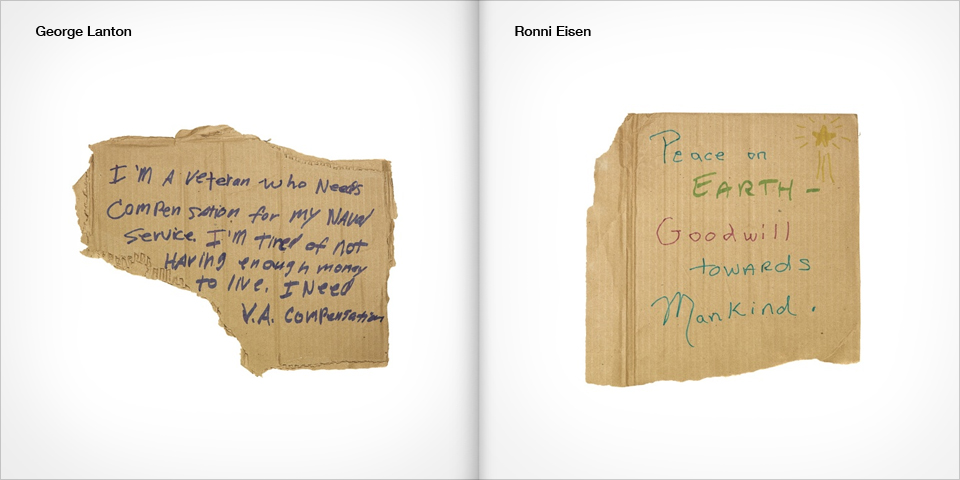 George Lanton
I'M A veteran who Needs
Compensation for my NAVal
Service. I'm tired of not
HAVing enough money
to live. I Need
V.A. Compensation
Ronni Eisen
Peace on
EARTH -
Goodwill
towards
Mankind.